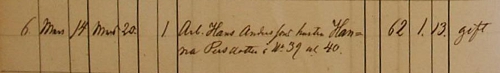 6 Mars 14 Mars 20. 1 Arb. Hans Anderssons hustru Han=
na Persdotter i No 39 et 40. 62 1. 13. gift